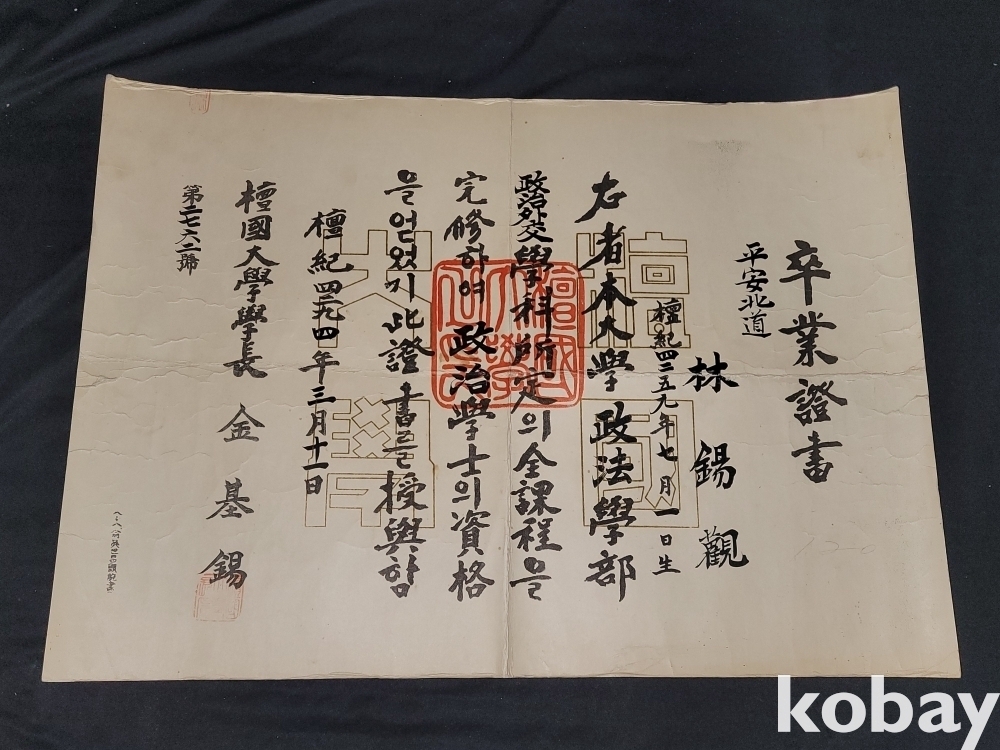 卒業證書
平安北道
林錫觀
檀紀四二五九年七月一日生
右者本大學政法學部
政治外交學科所定의全課程을
完修하여政治學士의資格
을얻었기此證書를授與함
檀紀四二九四年三月十一日
檀國大學學長 金基錫
第二七六二號
檀國大學
kobay